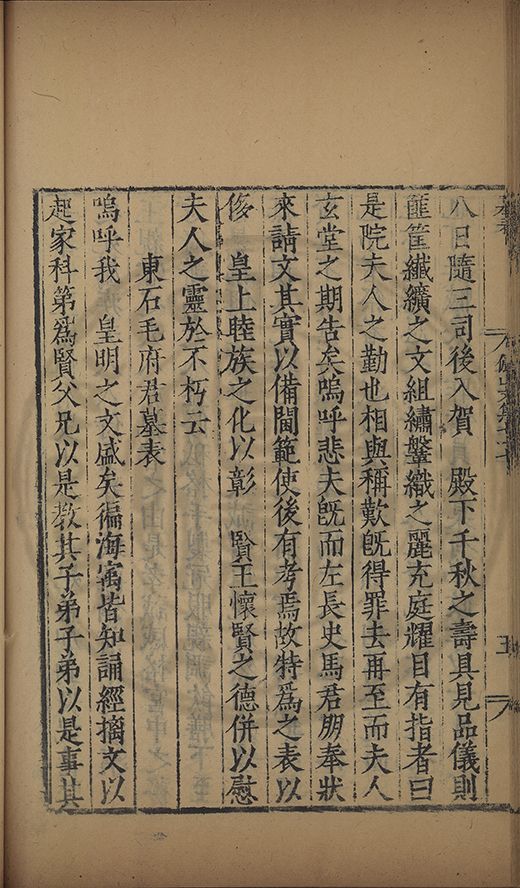 八日隨三司後入賀　殿下千秋之壽具見品儀則
匪筐纖纊之文組繡鞶織之麗充庭耀目有指者曰
是院夫人之勤也相與稱歎旣得罪去再至而夫人
玄堂之期告矣嗚呼悲夫旣而左長史馬君朋奉狀
來請文其實以備閫範使後有考焉故特爲之表以
俟　皇上睦族之化以彰　賢王懷賢之德併以慰
夫人之靈於不朽云
東石毛府君墓表
嗚呼我　皇明之文盛矣徧海寓皆知誦經摛文以
起家科第爲賢父兄以是教其子弟子弟以是事其